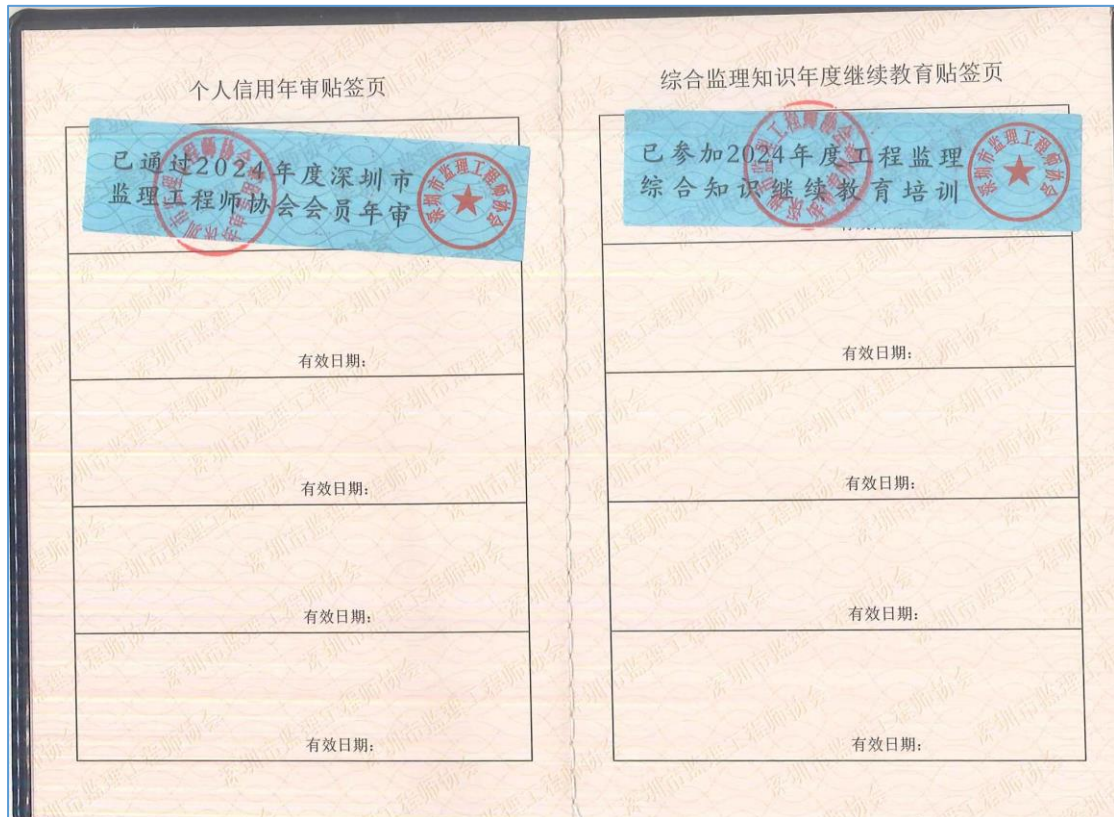 个人信用年审贴签页
已通过2024年度深圳市
监理工程师协会会员年审
深圳市监理工程师协会
有效日期:
有效日期:
有效日期:
有效日期:
综合监理知识年度继续教育贴签页
已参加2024年度工程监理
综合知识继续教育培训
深圳市监理工程师协会
有效日期:
有效日期:
有效日期:
有效日期: